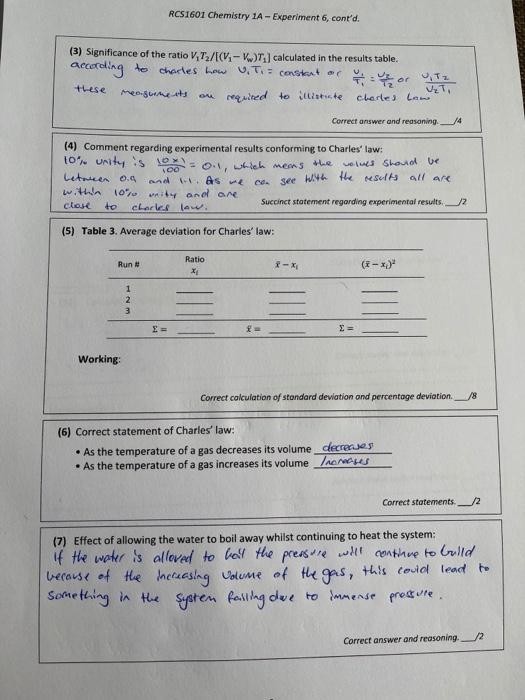 RCS1601 Chemistry 1A – Experiment 6, cont'd.
(3) Significance of the ratio V₁T₂/[(V₁ – Vw)T₁] calculated in the results table.
according to charles law V₁T₁ = constant or V₁/T₁ = V₂/T₂ or V₁T₂/V₂T₁
these measurments are required to illistrate charles Law
Correct answer and reasoning. __/4
(4) Comment regarding experimental results conforming to Charles' law:
10% unity is 10×1/100 = 0.1, which means the values should be
between 0.9 and 1.1. As we can see with the results all are
within 10% unity and are
close to charles law.
Succinct statement regarding experimental results. __/2
(5) Table 3. Average deviation for Charles' law:
Run # Ratio xᵢ x̄ – xᵢ (x̄ – xᵢ)²
1
2
3
Σ = x̄ = Σ =
Working:
Correct calculation of standard deviation and percentage deviation. __/8
(6) Correct statement of Charles' law:
• As the temperature of a gas decreases its volume decreases
• As the temperature of a gas increases its volume Increases
Correct statements. __/2
(7) Effect of allowing the water to boil away whilst continuing to heat the system:
If the water is allowed to boil the pressure will continue to build
because of the increasing volume of the gas, this could lead to
something in the system failing due to immense pressure.
Correct answer and reasoning. __/2